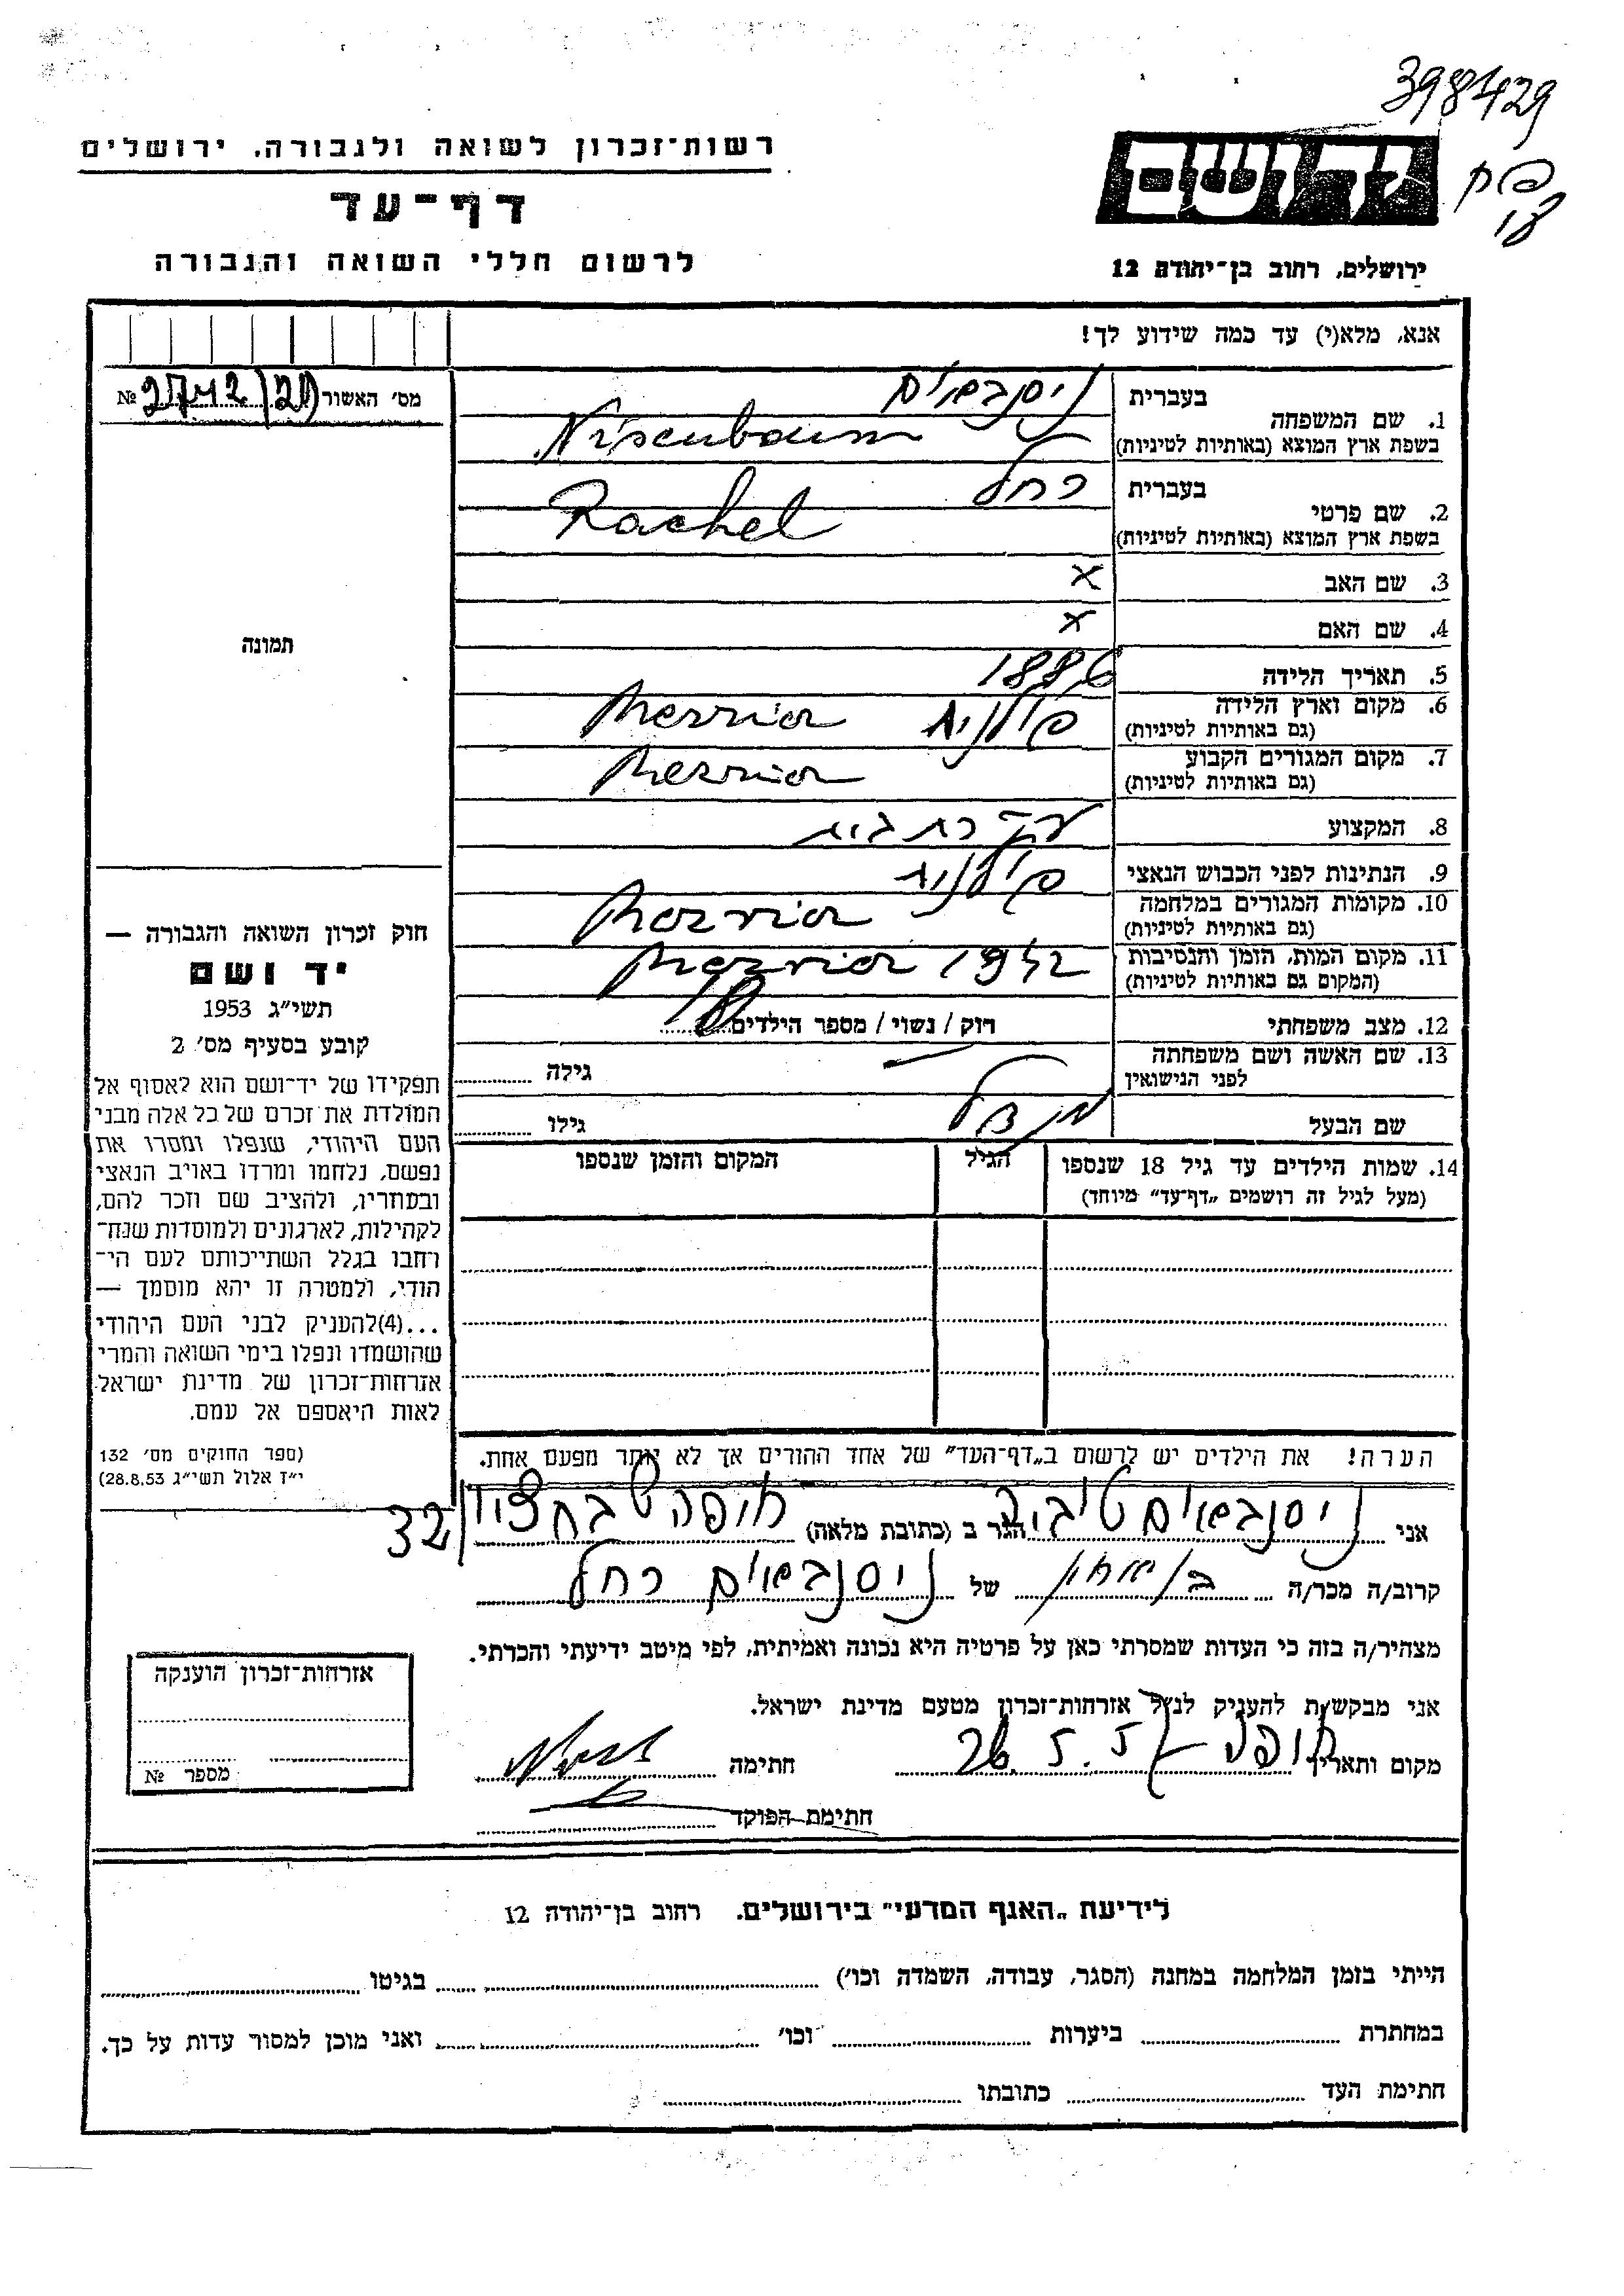 398429
רשות־זכרון לשואה ולגבורה, ירושלים
דף־עד
לרשום חללי השואה והגבורה
יד ושם
ירושלים, רחוב בן־יהודה 12
אנא, מלא(י) עד כמה שידוע לך!
מס׳ האשור №
1. שם המשפחה
בעברית ניסנבאום
בשפת ארץ המוצא (באותיות לטיניות) Nisenbaum
2. שם פרטי
בעברית רחל
בשפת ארץ המוצא (באותיות לטיניות) Rachel
3. שם האב x
4. שם האם x
5. תאריך הלידה 1886
6. מקום וארץ הלידה פולניה
(גם באותיות לטיניות)
7. מקום המגורים הקבוע
(גם באותיות לטיניות)
8. המקצוע עקרת בית
9. הנתינות לפני הכבוש הנאצי פולנית
10. מקומות המגורים במלחמה
(גם באותיות לטיניות)
11. מקום המות, הזמן והנסיבות 1942
(המקום גם באותיות לטיניות)
12. מצב משפחתי רוק / נשוי / מספר הילדים
13. שם האשה ושם משפחתה
לפני הנישואין גילה
שם הבעל מנדל גילו
14. שמות הילדים עד גיל 18 שנספו הגיל המקום והזמן שנספו
(מעל לגיל זה רושמים „דף־עד” מיוחד)
תמונה
חוק זכרון השואה והגבורה —
יד ושם
תשי״ג 1953
קובע בסעיף מס׳ 2
תפקידו של יד־ושם הוא לאסוף אל
המולדת את זכרם של כל אלה מבני
העם היהודי, שנפלו ומסרו את
נפשם, נלחמו ומרדו באויב הנאצי
ובעוזריו, ולהציב שם וזכר להם,
לקהילות, לארגונים ולמוסדות שנח־
רחבו בגלל השתייכותם לעם הי־
הודי, ולמטרה זו יהא מוסמך —
...(4)להעניק לבני העם היהודי
שהושמדו ונפלו בימי השואה והמרי
אזרחות־זכרון של מדינת ישראל
לאות היאספם אל עמם.
(ספר החוקים מס׳ 132
י״ז אלול תשי״ג 28.8.53)
הערה! את הילדים יש לרשום ב„דף־העד” של אחד ההורים אך לא יותר מפעם אחת.
אני ניסנבאום הגר ב (כתובת מלאה) חיפה 32
קרוב/ה מכר/ה של ניסנבאום רחל
מצהיר/ה בזה כי העדות שמסרתי כאן על פרטיה היא נכונה ואמיתית, לפי מיטב ידיעתי והכרתי.
אני מבקש/ת להעניק לנ״ל אזרחות־זכרון מטעם מדינת ישראל.
מקום ותאריך חיפה 26.5.57 חתימה
חתימת הפוקד
אזרחות־זכרון הוענקה
מספר №
לידיעת „האגף המדעי” בירושלים. רחוב בן־יהודה 12
הייתי בזמן המלחמה במחנה (הסגר, עבודה, השמדה וכו׳) בגיטו
במחתרת ביערות וכו׳ ואני מוכן למסור עדות על כך.
חתימת העד כתובתו